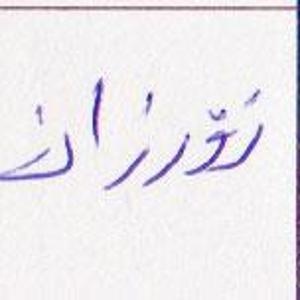 زۆرزان